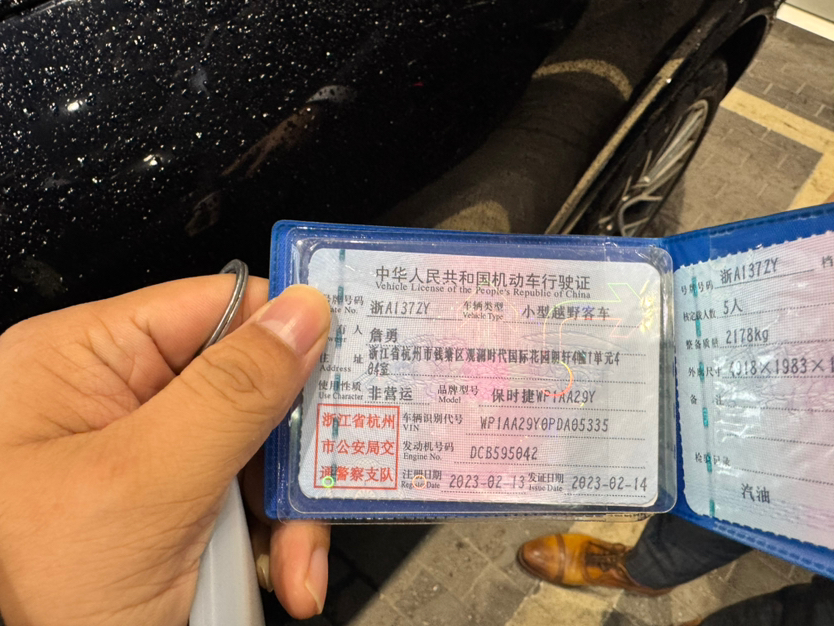 中华人民共和国机动车行驶证
Vehicle License of the People's Republic of China
号牌号码 浙A137ZY 车辆类型 小型越野客车
Plate No. Vehicle Type
有人 詹勇
住址 浙江省杭州市钱塘区观澜时代国际花园 轩4幢1单元4
Address 04室
使用性质 非营运 品牌型号 保时捷WP1AA29Y
Use Character Model
浙江省杭州
市公安局交
通警察支队
车辆识别代号 WP1AA29Y0PDA05335
VIN
发动机号码 DCB595042
Engine No.
注册日期 2023-02-13 发证日期 2023-02-14
Register Date Issue Date
号牌号码 浙A137ZY 档
核定载人数 5人
整备质量 2178kg
外廓尺寸 4918×1983×1
备注
检验记录
汽油